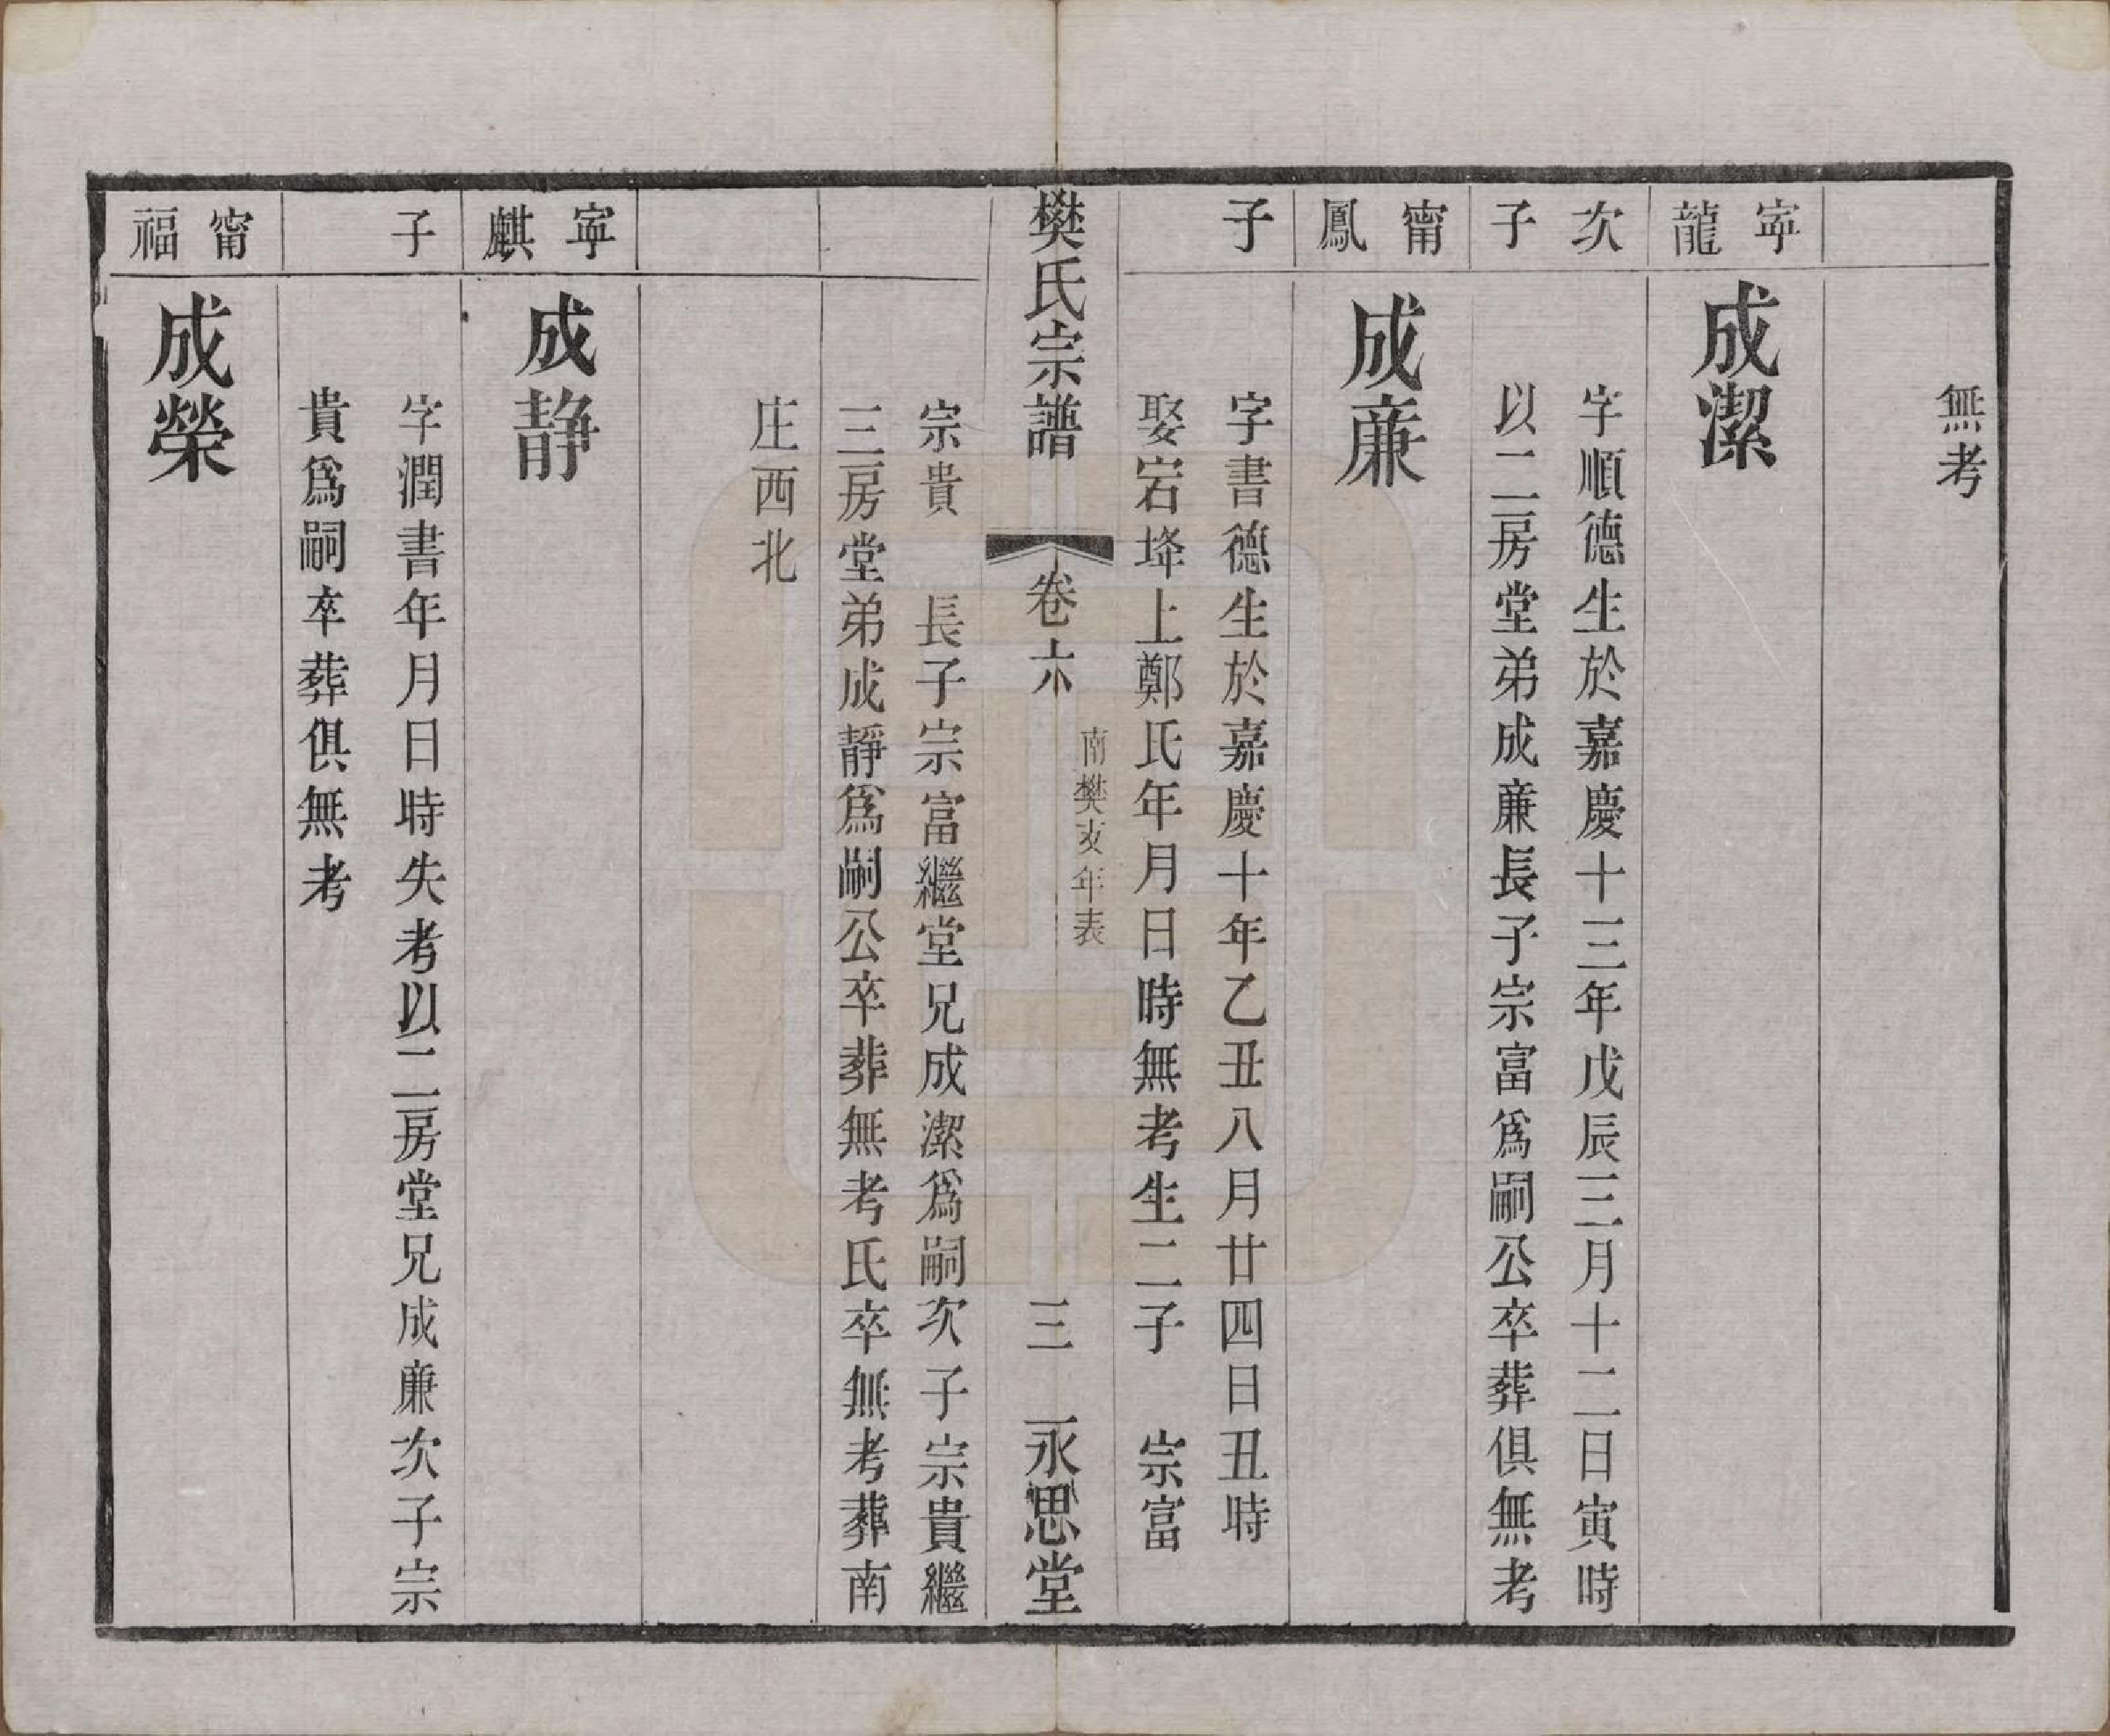 無考
寍龍
成潔
次子
字順德生於嘉慶十三年戊辰三月十二日寅時
以二房堂弟成亷長子宗富爲嗣公卒葬俱無考
甯鳳
成亷
子
字書德生於嘉慶十年乙丑八月廿四日丑時
娶宕垰上鄭氏年月日時無考生二子 宗富
樊氏宗譜
卷六
南樊支年表
三
永思堂
宗貴 長子宗富繼堂兄成潔爲嗣次子宗貴繼
三房堂弟成靜爲嗣公卒葬無考氏卒無考葬南
庄西北
寍麒
成静
子
字潤書年月日時失考以二房堂兄成亷次子宗
貴爲嗣卒葬俱無考
甯福
成榮